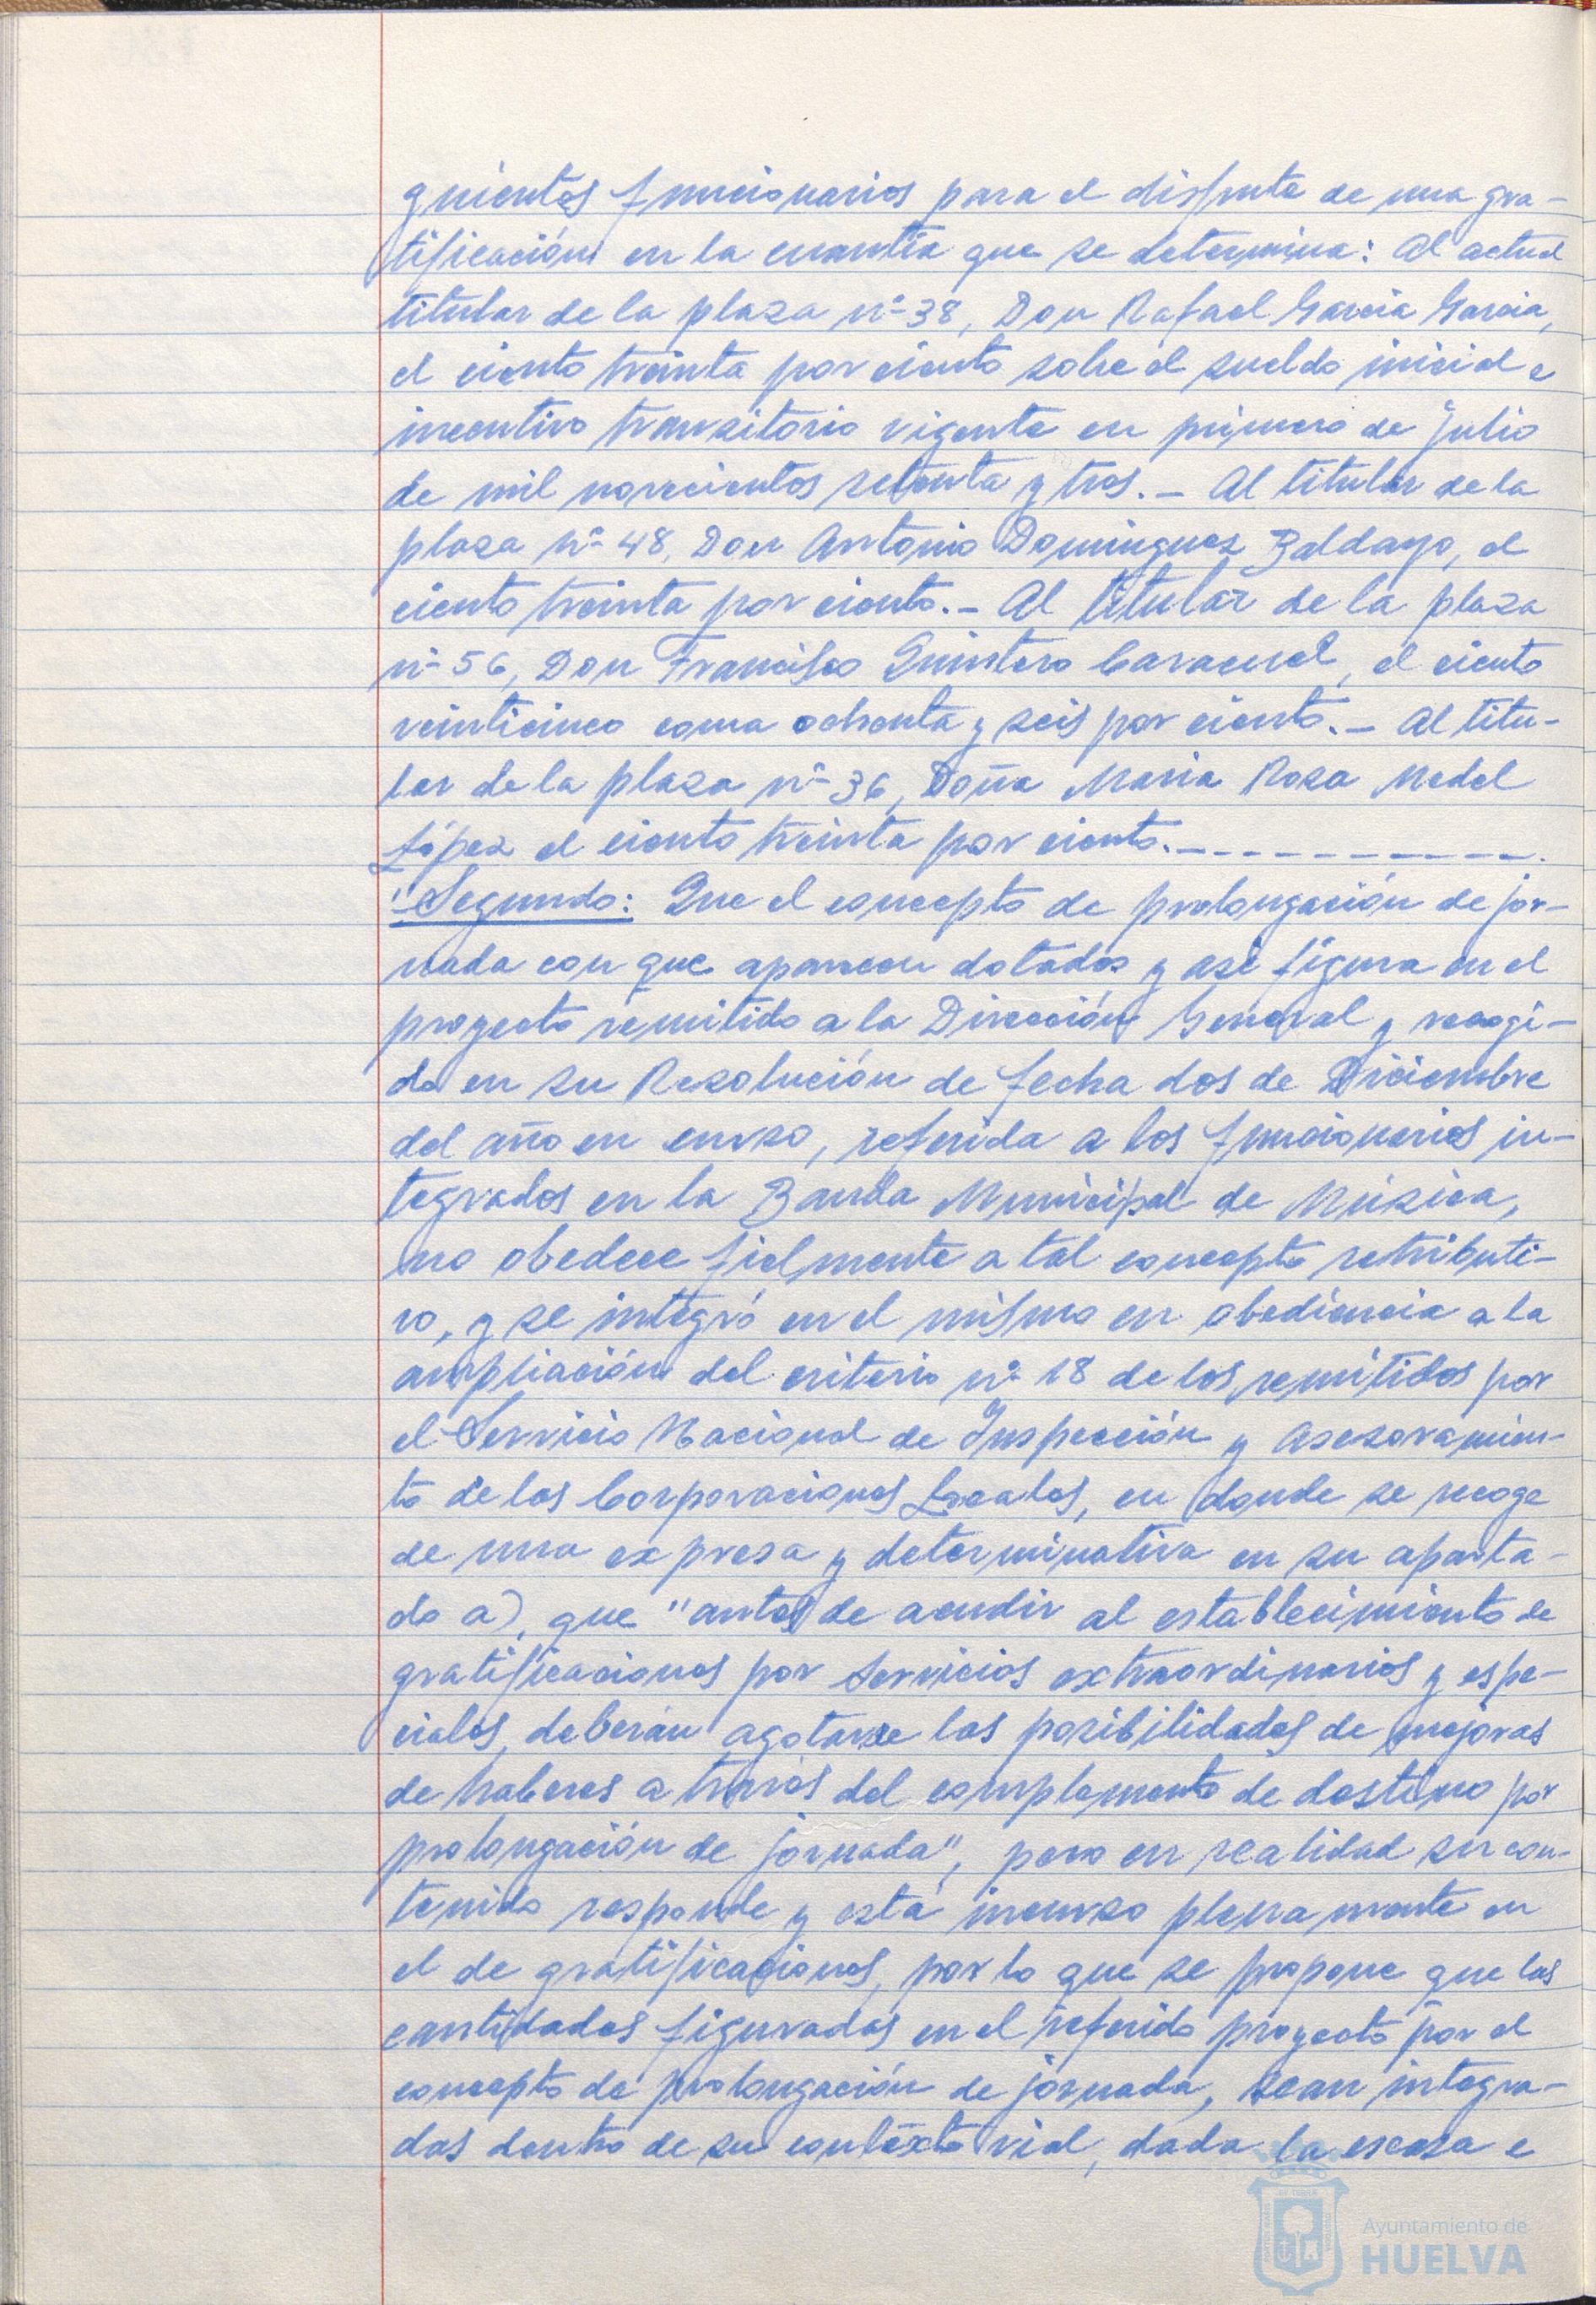 guientes funcionarios para el disfrute de una gra-
tificación en la cuantía que se determina: Al actual
titular de la plaza nº 38, Don Rafael García García,
el ciento treinta por ciento sobre el sueldo inicial e
incentivo transitorio vigente en primero de Julio
de mil novecientos setenta y tres.- Al titular de la
plaza nº 48, Don Antonio Dominguez Baldayo, el
ciento treinta por ciento.- Al titular de la plaza
nº 56, Don Francisco Quintero Caracuel, el ciento
veinticinco coma ochenta y seis por ciento.- Al titu-
lar de la plaza nº 36, Doña Maria Rosa Medel
López el ciento treinta por ciento.- - - - - - - - - - - -.
"Segundo: Que el concepto de prolongación de jor-
nada con que aparecen dotados y asi figura en el
proyecto remitido a la Dirección General y recogi-
do en su Resolución de fecha dos de Diciembre
del año en curso, referida a los funcionarios in-
tegrados en la Banda Municipal de Música,
no obedece fielmente a tal concepto retributi-
vo, y se integró en el mismo en obediencia a la
ampliación del criterio nº 18 de los remitidos por
el Servicio Nacional de Inspección y Asesoramien-
to de las Corporaciones Locales, en donde se recoge
de una expresa y determinativa en su aparta-
do a), que "antes de acudir al establecimiento de
gratificaciones por servicios extraordinarios y espe-
ciales, deberán agotarse las posibilidades de mejoras
de haberes a través del complemento de destino por
prolongación de jornada", pero en realidad su con-
tenido responde y está incurso plenamente en
el de gratificaciones, por lo que se propone que las
cantidades figuradas en el referido proyecto por el
concepto de prolongación de jornada, sean integra-
das dentro de su contexto vial, dada la escasa e
Ayuntamiento de
HUELVA